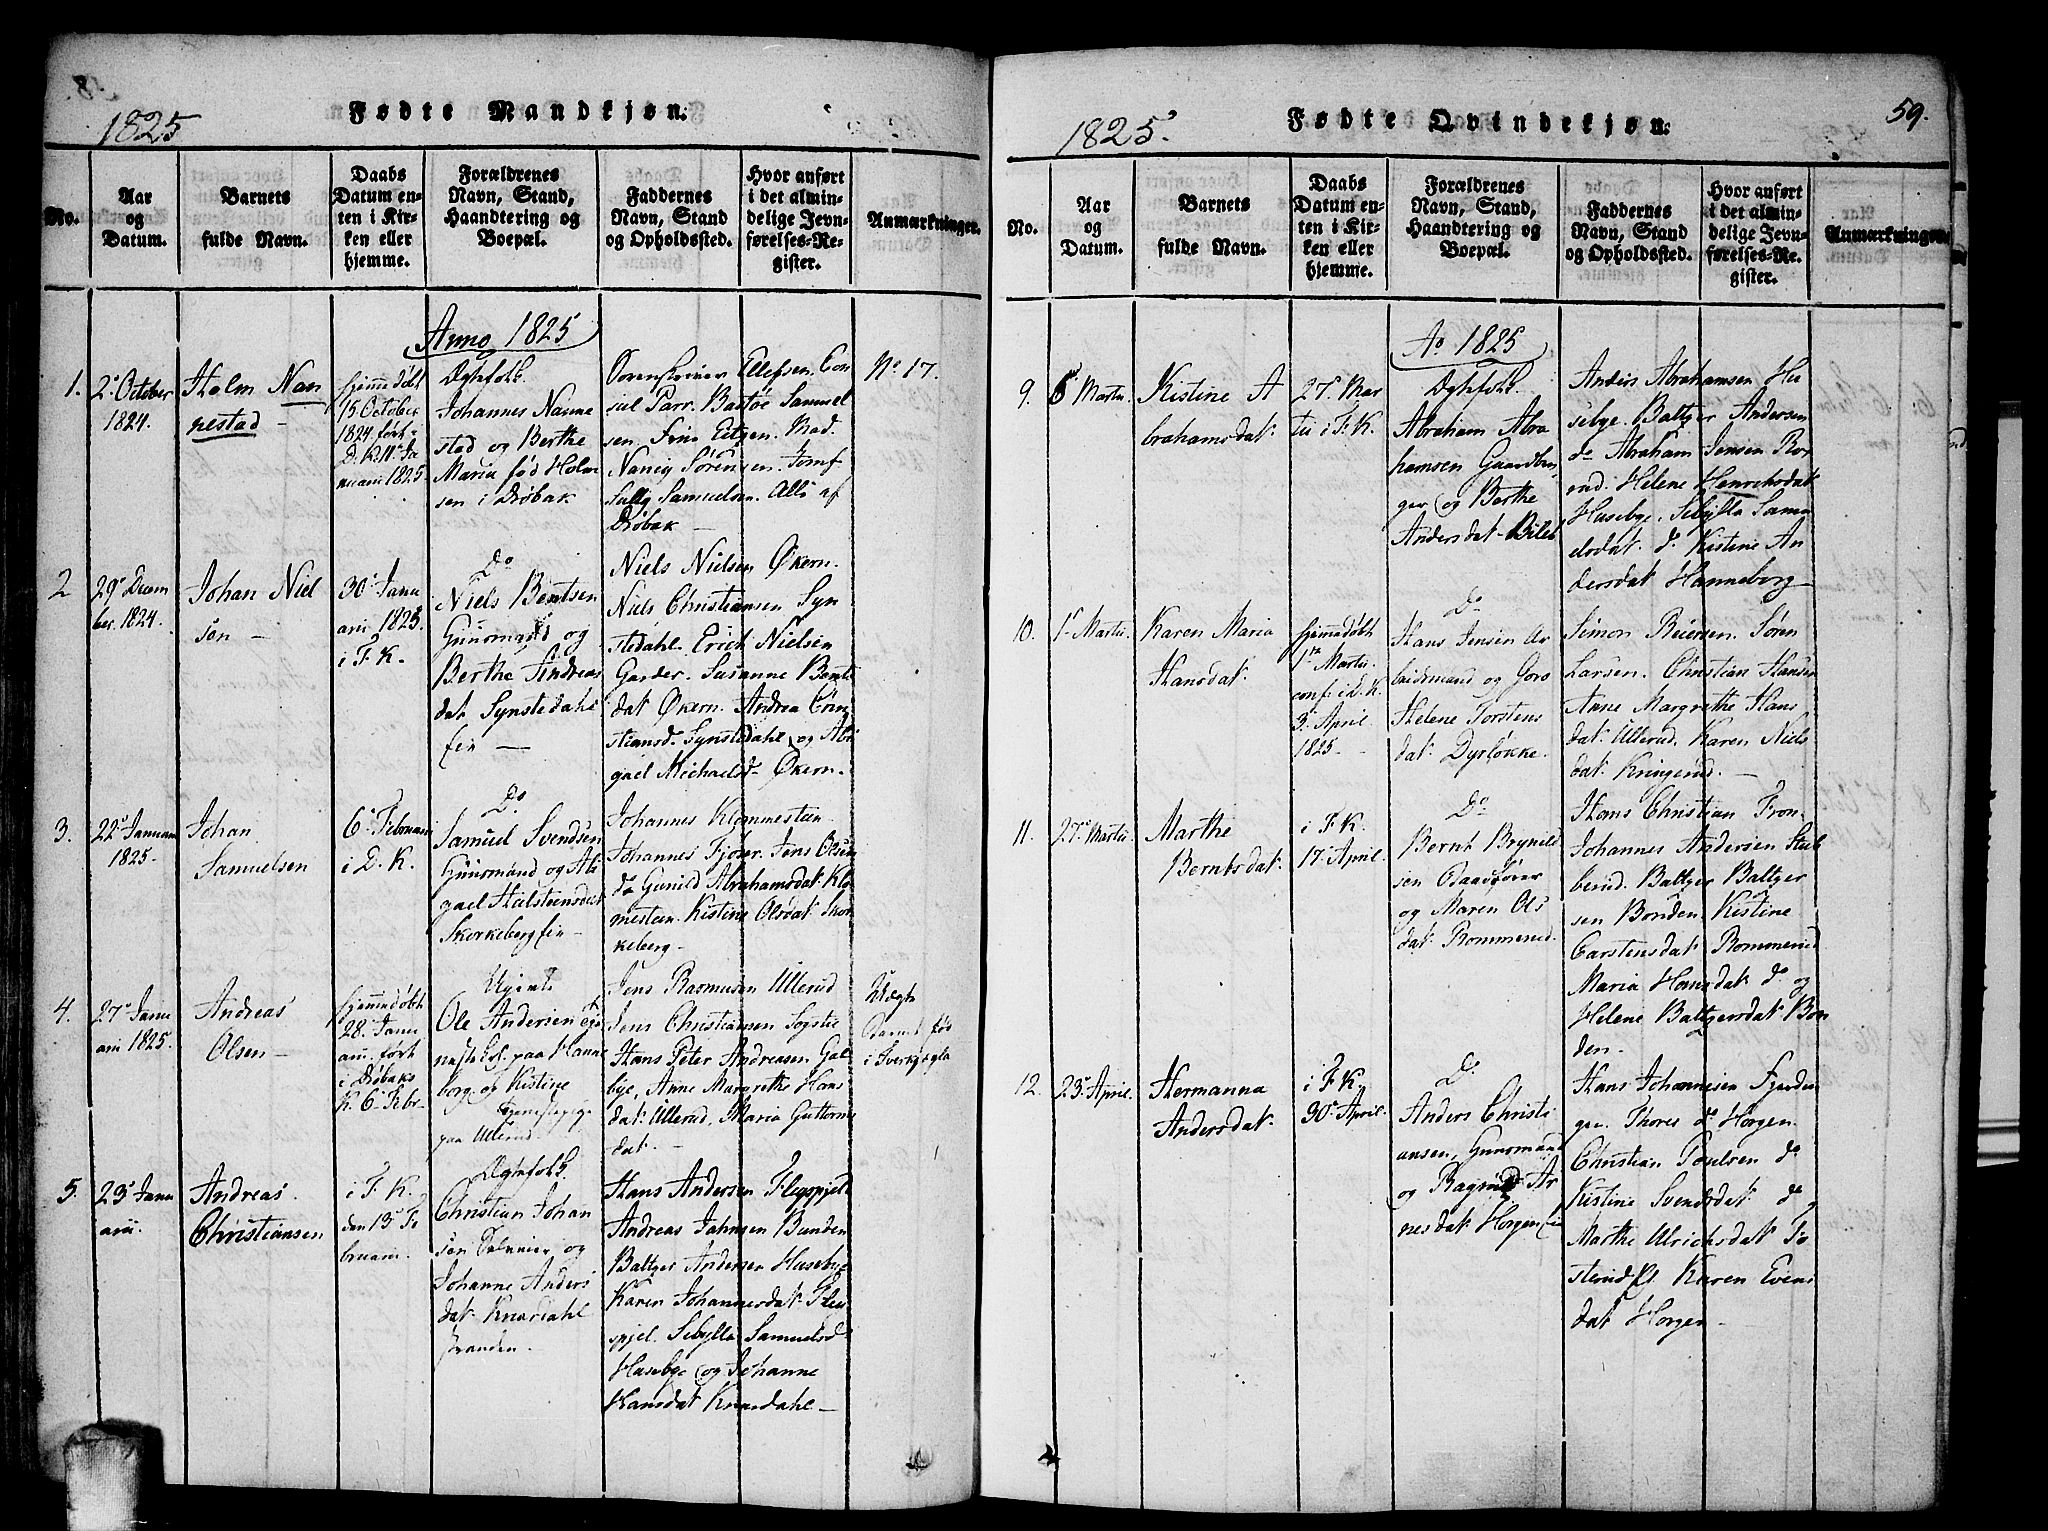 1825
Fødte Mandkjøn.
No.
Aar
og
Datum.
Barnets
fulde Navn.
Daabs
Datum en-
ten i Kir-
ken eller
hjemme.
Forældrenes
Navn, Stand,
Haandtering og
Boepæl.
Faddernes
Navn, Stand
og Opholdssted.
Hvor anført
i det almin-
delige Jevn-
førelses-Re-
gister.
Anmærkninger.
Anno 1825
1.
2. October
1824.
Holm Nan
nestad
Hjemedøbt
15 October
1824 ført i
D. K. 11 Ja
nuarii 1825
Ægtefolk.
Johannes Nanne
stad og Berthe
Maria fød Holm
sen i Drøbak
Sorenskriver Ellefsen, Con
sul Parr. Bastøe Samuel
sen. Frue Eitzen. Mad.
Nancy Sørensen. Jomf
Sally Samuelsen. Alle af
Drøbak
No 17.
2
29 Decem
ber. 1824.
Johan Niel
sen
30 Janu
arii 1825.
i F. K.
Do
Niels Berntsen
Huusmand og
Berthe Andreas
dat Synstedahl
ein
Niels Nielsen Økern.
Niels Christiansen Syn
stedahl. Erich Nielsen
Garder. Susanne Bernts
dat Økern. Andrea Chri
stiansd. Synstedahl og Abi
gael Michaelsd Økern.
3.
22 Januarii
1825.
Johan
Samuelsen
6 Februarii
i D. K.
Do
Samuel Svendsen
Huusmand og Abi
gael Halsteensdat
Skorkeberg ein
Johannes Klommesteen
Johannes Fjøser. Jens Olsen
do Gunild Abrahamsdat Klo
mesteen. Kistine Olsdat Skor
keberg
4.
27 Janu
arii 1825.
Andreas
Olsen
Hjemedøbt
28. Janu
arii. ført
i Drøbaks
K. 6 Febr
Ugivte
Ole Andersen Tje
paa Hanne
borg og Kistine
paa Ullerud.
Jens Rasmusen Ullerud
Jens Christiansen Sogstie
Hans Peter Andreasen Gal
bye, Anne Margrethe Hans
dat Ullerud. Maria Guttorms
dat.
Uægte
Barnet fød
5.
23 Janu
arii.
Andreas
Christiansen
i F. K.
den 13 Fe
bruarii.
Ægtefolk
Christian Johan
sen og
Johanne Anders
dat Knardahl
stranden.
Hans Andersen Flegspjel
Andreas Jahnsen Bunden
Baltzer Andersen Huseby
Karen Johannesdat Fleg
spjel. Sibylla Samuelsd
Husebye og Johanne
Hansdat Knardahl
1825.
Fødte Qvindekjøn.
59.
No.
Aar
og
Datum.
Barnets
fulde Navn.
Daabs
Datum en-
ten i Kir-
ken eller
hjemme.
Forældrenes
Navn, Stand,
Haandtering og
Boepæl.
Faddernes
Navn, Stand
og Opholdssted.
Hvor anført
i det almin-
delige Jevn-
førelses-Re-
gister.
Anmærkninger.
Ao 1825
9.
6 Martii
Kistine A
brahamsdat.
27 Mar
tii i F. K.
Ægtefolk.
Abraham Abra
hamsen Gaardbru
ger og Berthe
Andersdat Bileb
Anders Abrahamsen Hu
sebye. Baltzer Andersen
do Abraham Jensen Ro
erud. Helene Henrichsdat
Husebye. Sibylla Samu
elsdat do Kistine An
dersdat Hanneborg
10.
1 Martii
Karen Maria
Hansdat.
Hjemedøbt
1 Martii.
conf. i D. K.
3 April.
1825.
Do
Hans Jensen Ar
beidsmand og Goro
Helene Torstens
dat Dyrløkke.
Simon Reiersen. Søren
Larsen. Christian Hansen
Anne Margrethe Hans
dat Ullerud. Karen Niels
dat Kringerud.
11.
27 Martii
Marthe
Berntsdat.
i F. K.
17 April.
Do
Bernt Brynild
sen Baadsfører
og Maren Ols
dat Rommerud.
Hans Christian Tron
Johannes Andersen Stub
berud. Baltzer Baltzer
sen Bonden Kistine
Carstensdat Rommerud
Maria Hansdat do og
Helene Baltzersdat Bon
den.
12.
23 April.
Hermanna
Andersdat.
i F. K.
30 April.
Do
Anders Christi
ansen, Huusmand
og Ragnild Ar
nesdat Horgen ein
Hans Johannesen
Thores do Horgen.
Christian Poulsen do
Kistine Svendsdat do og
Marthe Ulrichsdat To
sterud. Karen Evens
dat Horgen